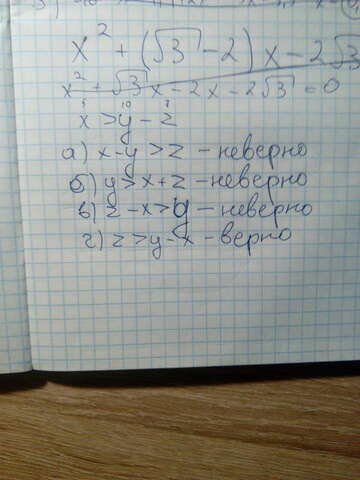 x² + (√3 - 2) x - 2√3
x² + √3 x - 2x - 2√3 = 0
x > y - z
а) x-y > z - неверно
б) y > x + z - неверно
в) z - x > y - неверно
г) z > y - x - верно